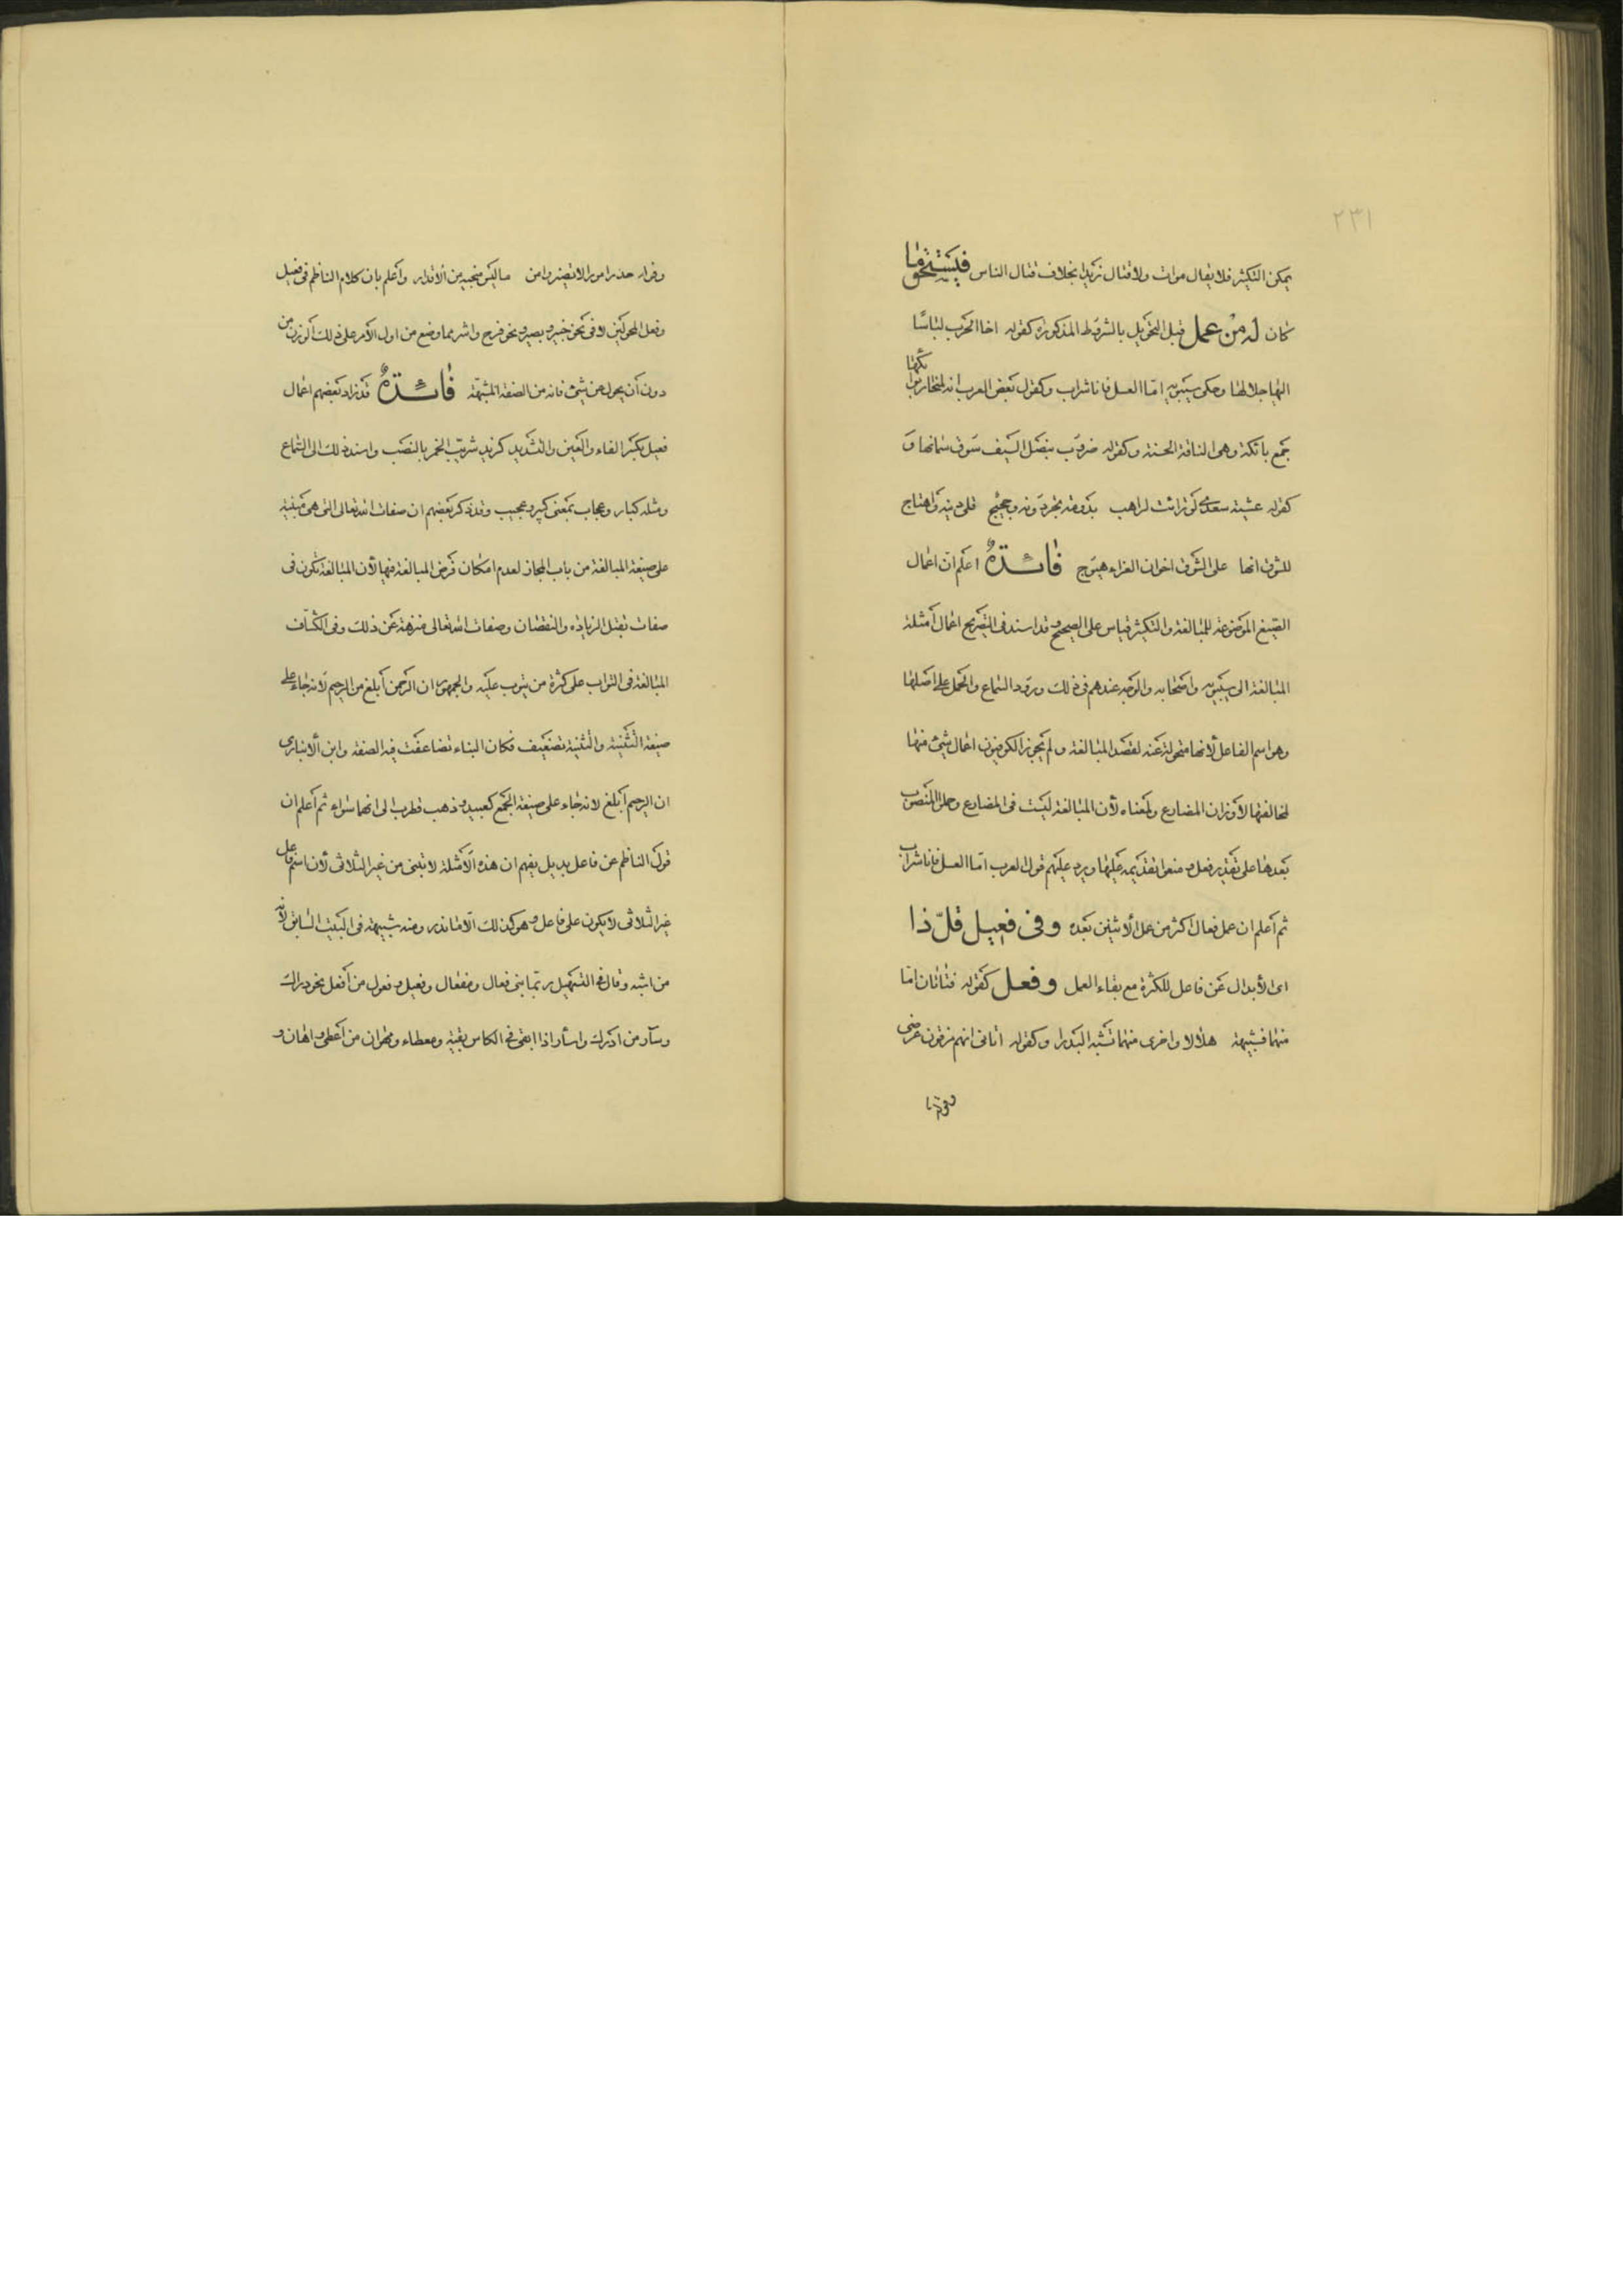 ٢٣١
يمكن التكثير فلا يقال موات ولا قتال زيدا بخلاف قتال الناس فيستحق ما
كان له من عمل قبل التحويل بالشروط المذكورة كقوله اخا الحرب لباسا
اليها جلالها وحكى سيبويه اما العسل فانا شراب وكقول بعض العرب انه لمنحار بوائكها
جمع بائكة وهى الناقة الحسنة وكقوله ضروب بنصل السيف سوق سمانها و
كقوله عشية سعدى لو تراءت لراهب بدومة تجر دونه وحجيج قلى دينه واهتاج
للشوق انها على الشوق اخوان العزاء هيوج فائدة اعلم ان اعمال
الصيغ الموضوعة للمبالغة والتكثير قياس على الصحيح وقد اسند فى التصريح اعمال أمثلة
المبالغة الى سيبويه واصحابه والوجه عندهم فى ذلك ورود السماع والحمل على اصلها
وهو اسم الفاعل لأنها متحولة عنه لقصد المبالغة ولم يجوز الكوفيون اعمال شيئ منها
لمخالفتها لأوزان المضارع ولمعناه لأن المبالغة ليست فى المضارع وحملوا المنصوب
بعدها على تقدير فعل ومنعوا تقديمه عليها ويرد عليهم قول العرب اما العسل فانا شراب
ثم اعلم ان عمل فعال اكثر من عمل الأثنين بعده وفى فعيل قل ذا
اى الأبدال عن فاعل للكثرة مع بقاء العمل وفعل كقوله فتاتان اما
منهما فشبيهة هلالا واخرى منهما تشبه البدرا وكقوله اتانى انهم مزقون عرضى
وقوله
وقوله حذر امورا لا تضير وامن ما ليس منجيه من الأقدار واعلم بان كلام الناظم فى فعيل
وفعل المحولين لا فى نحو خبير وبصير ونحو فرح واشر مما وضع من اول الأمر على ذلك الوزن من
دون أن يحول من شيئ فانه من الصفة المشبهة فائدة قد زاد بعضهم اعمال
فعيل بكسر الفاء والعين والتشديد كزيد شريب الخمر بالنصب واسند ذلك الى السماع
ومثله كبار وعجاب بمعنى كبير وعجيب وقد ذكر بعضهم ان صفات الله تعالى التى هى مبنية
على صيغة المبالغة من باب المجاز لعدم امكان فرض المبالغة فيها لأن المبالغة تكون فى
صفات تقبل الزيادة والنقصان وصفات الله تعالى منزهة عن ذلك وفى الكشاف
المبالغة فى التواب على كثرة من يتوب عليه والجمهور ان الرحمن أبلغ من الرحيم لأنه جاء على
صيغة التثنية والتثنية تضعيف فكان البناء تضاعفت فيه الصفة وابن الأنبارى
ان الرحيم أبلغ لأنه جاء على صيغة الجمع كعبيد وذهب قطرب الى انهما سواء ثم اعلم ان
قول الناظم عن فاعل بديل يفهم ان هذه الأمثلة لا تبنى من غير الثلاثى لأن اسم فاعل
غير الثلاثى لا يكون على فاعل وهو كذلك الا ما ندر ومنه شبيهة فى البيت السابق لأنه
من اشبه وقال فى التسهيل ربما بنى فعال ومفعال وفعيل وفعول من أفعل نحو دراك
وسآر من ادرك واسأر اذا ابقى فى الكاس بقية ومعطاء ومهوان من أعطى واهان و